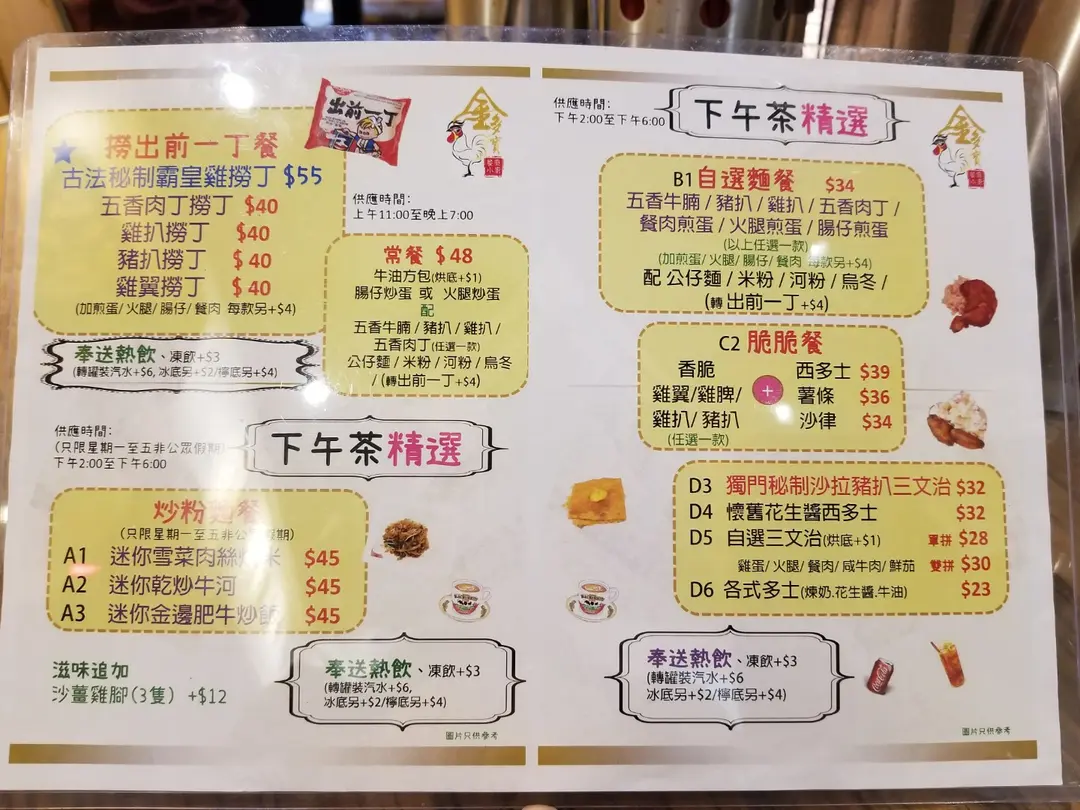 出前一丁
金多寶
撈出前一丁餐
古法秘制霸皇雞撈丁 $55
五香肉丁撈丁 $40
雞扒撈丁 $40
豬扒撈丁 $40
雞翼撈丁 $40
(加煎蛋/火腿/腸仔/餐肉 每款另+$4)
奉送熱飲、凍飲+$3
(轉罐裝汽水+$6, 冰底另+$2/檸底另+$4)
供應時間:
上午11:00至晚上7:00
常餐 $48
牛油方包(烘底+$1)
腸仔炒蛋 或 火腿炒蛋
配
五香牛腩/豬扒/雞扒/
五香肉丁(任選一款)
公仔麵/米粉/河粉/烏冬
/(轉出前一丁+$4)
供應時間:
(只限星期一至五非公眾假期)
下午2:00至下午6:00
下午茶精選
炒粉麵餐
(只限星期一至五非公眾假期)
A1 迷你雪菜肉絲炆米 $45
A2 迷你乾炒牛河 $45
A3 迷你金邊肥牛炒飯 $45
滋味追加
沙薑雞腳(3隻) +$12
奉送熱飲、凍飲+$3
(轉罐裝汽水+$6,
冰底另+$2/檸底另+$4)
圖片只供參考
供應時間:
下午2:00至下午6:00
下午茶精選
金多寶
B1自選麵餐 $34
五香牛腩/豬扒/雞扒/五香肉丁/
餐肉煎蛋/火腿煎蛋/腸仔煎蛋
(以上任選一款)
(加煎蛋/火腿/腸仔/餐肉 每款另+$4)
配 公仔麵/米粉/河粉/烏冬/
(轉 出前一丁+$4)
C2 脆脆餐
香脆 西多士 $39
雞翼/雞脾/ + 薯條 $36
雞扒/豬扒 沙律 $34
(任選一款)
D3 獨門秘制沙拉豬扒三文治 $32
D4 懷舊花生醬西多士 $32
D5 自選三文治(烘底+$1) 單拼 $28
雞蛋/火腿/餐肉/咸牛肉/鮮茄 雙拼 $30
D6 各式多士(煉奶.花生醬.牛油) $23
奉送熱飲、凍飲+$3
(轉罐裝汽水+$6
冰底另+$2/檸底另+$4)
圖片只供參考